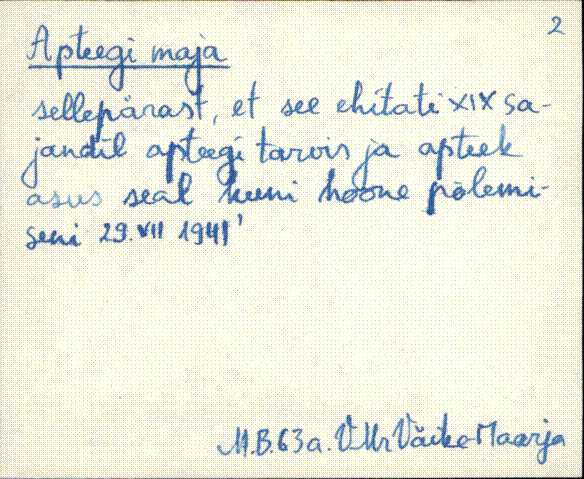 2
Apteegi maja
sellepärast, et see ehitati XIX sa-
jandil apteegi tarvis ja apteek
asus seal kuni hoone põlemi-
seni 29. VII 1941'
M.B. 63a. V-Mr Väike-Maarja